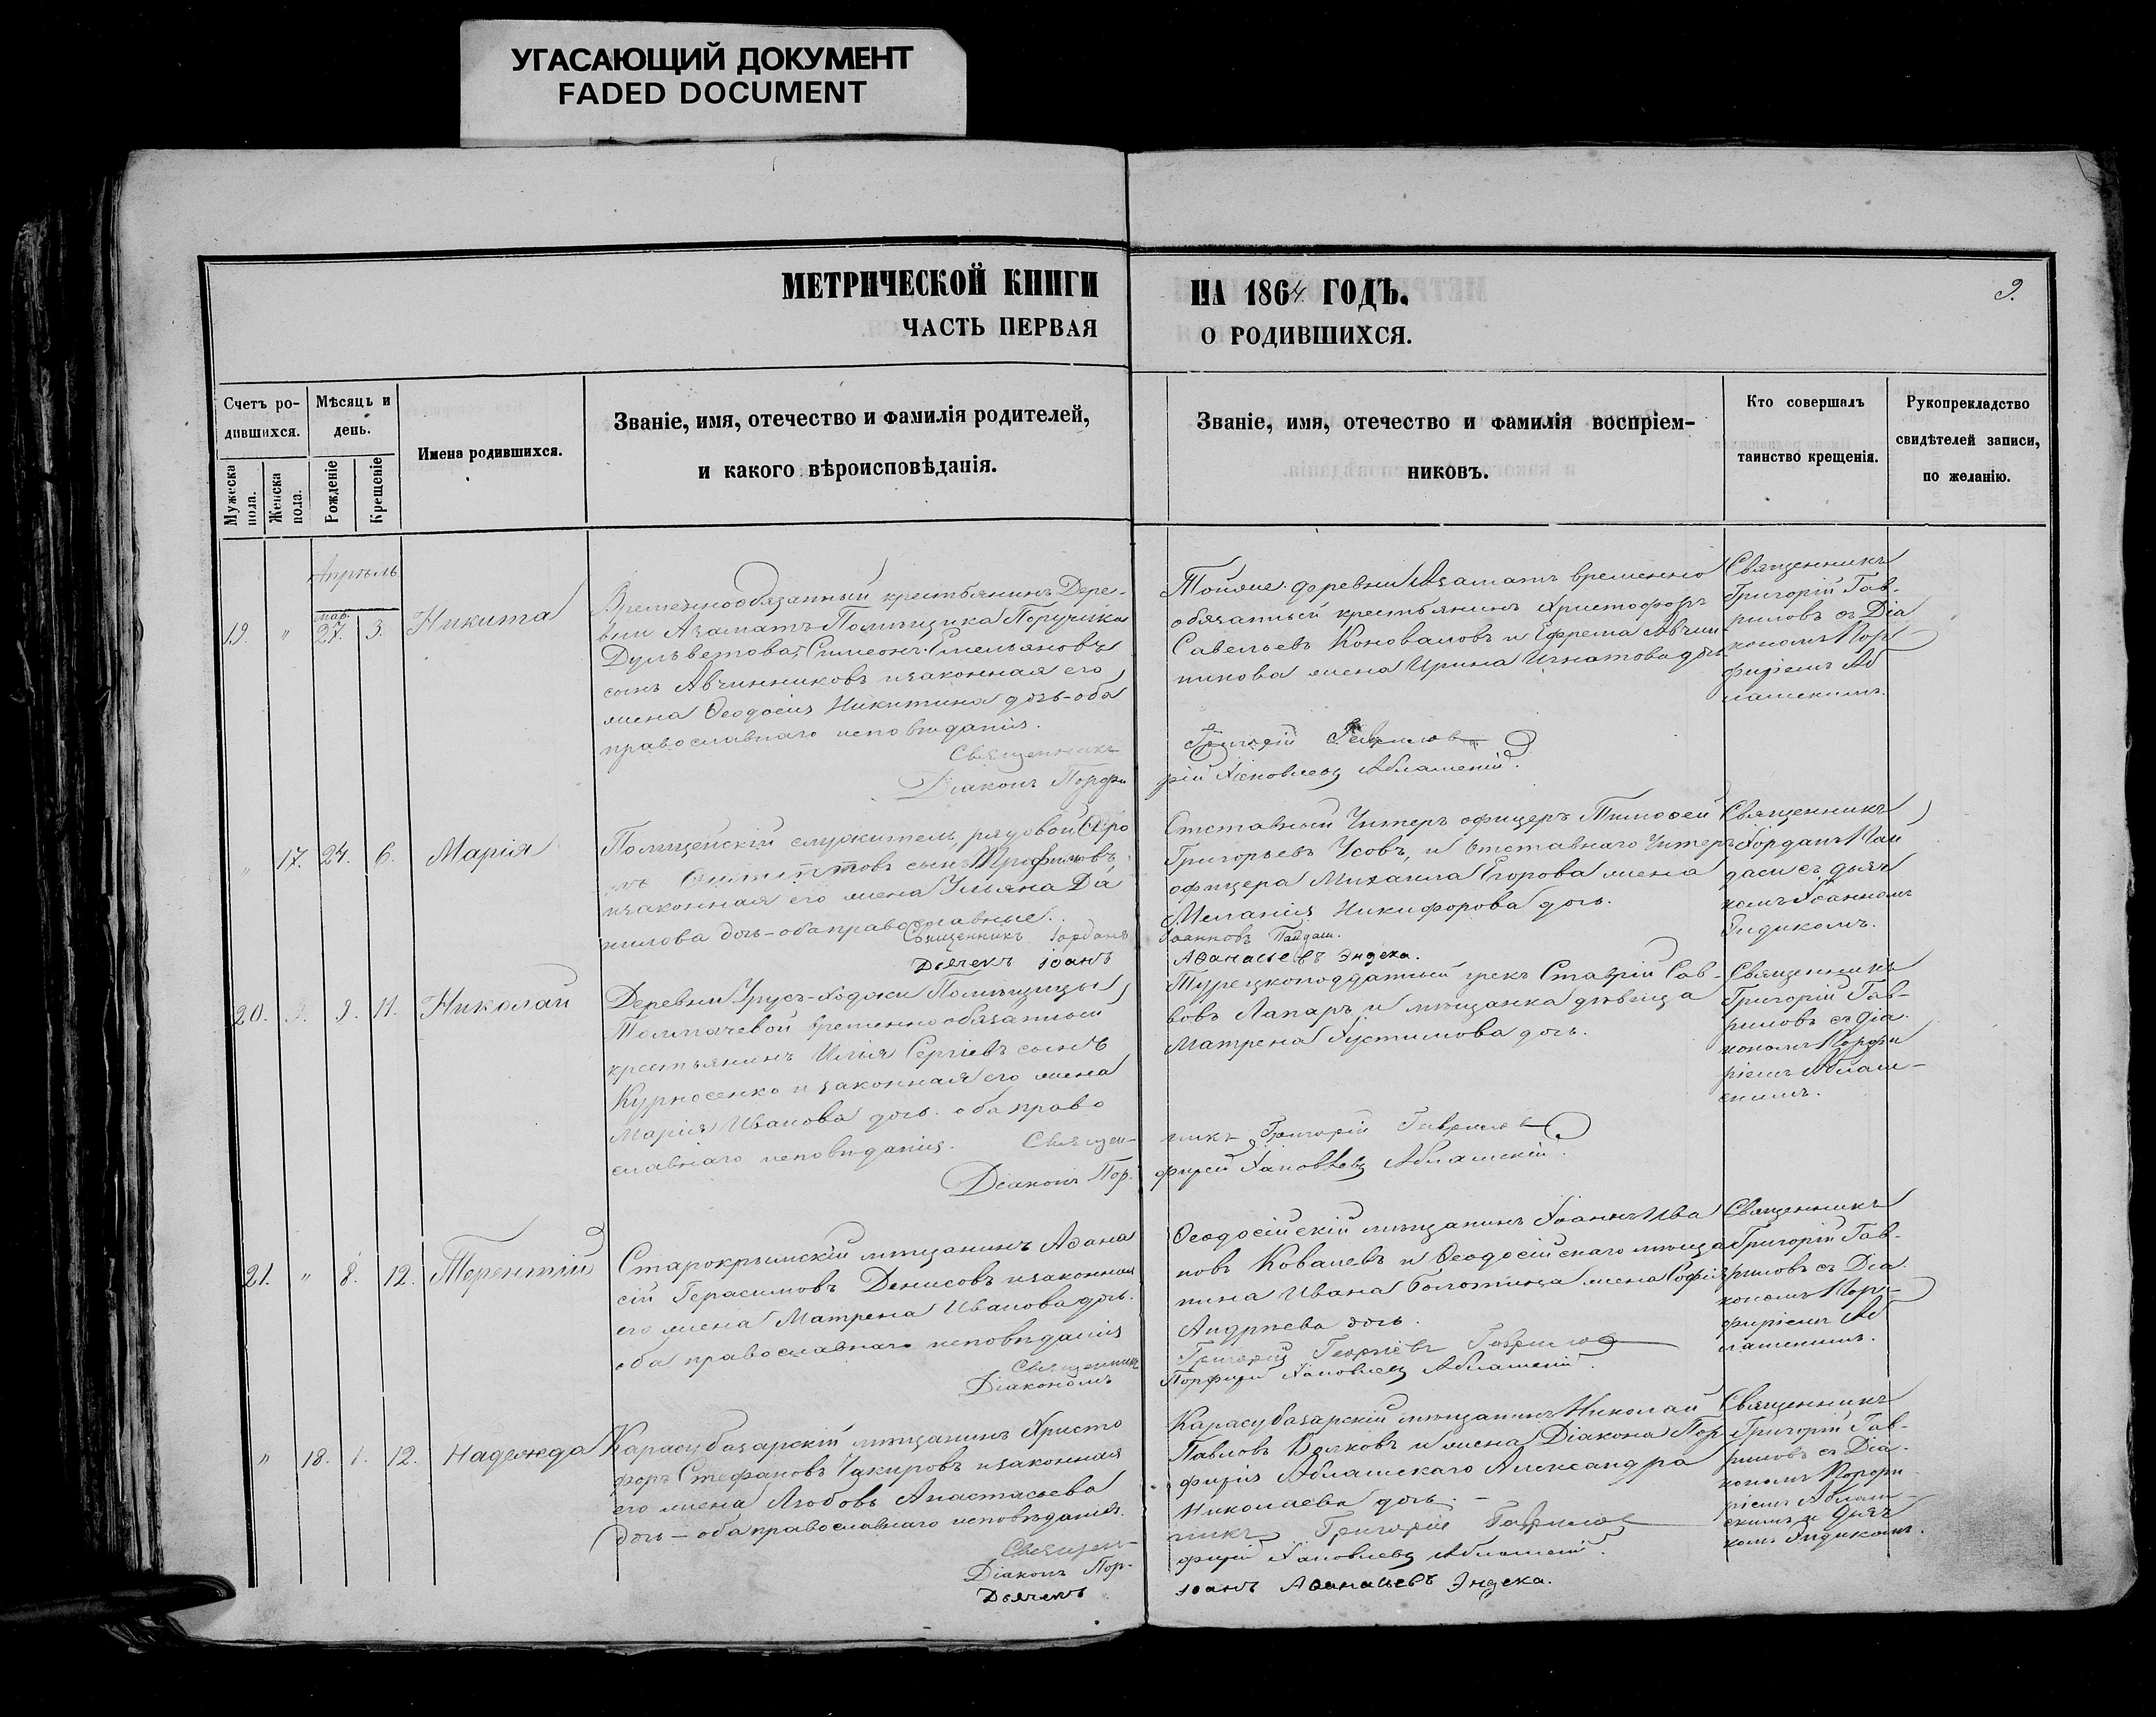 УГАСАЮЩИЙ ДОКУМЕНТ
FADED DOCUMENT
МЕТРИЧЕСКОЙ КНИГИ
ЧАСТЬ ПЕРВАЯ
НА 1864 ГОДЪ.
О РОДИВШИХСЯ.
9.
Счетъ ро-
дившихся.
Мужеска пола.
Женска пола.
Мѣсяцъ и
день.
Рожденіе
Крещеніе
Имена родившихся.
Званіе, имя, отечество и фамилія родителей,
и какого вѣроисповѣданія.
Званіе, имя, отечество и фамилія воспріем-
никовъ.
Кто совершалъ
таинство крещенія.
Рукоприкладство
свидѣтелей записи,
по желанію.
Апрѣль
19. " мар. 27. 3. Никита
Временнообязанный крестьянинъ Дере-
вни Азаматъ Помѣщика Поручика
Симеонъ Емельяновъ
сынъ Авчинниковъ и законная его
жена Ѳеодосія Никитина дочь - оба
православнаго исповѣданія.
Священникъ
Діаконъ Порфи
Тойже деревни Азаматъ временно
обязанный крестьянинъ Христофоръ
Савельевъ Коноваловъ и Ефрема Авчин
никова жена Ирина Игнатова дочь
Григорій Гавриловъ
рій Яковлевъ Аблашскій.
Священникъ
Григорій Гав-
риловъ съ Діа
кономъ Пор-
фиріемъ Аб
лашскимъ.
" 17. 24. 6. Марія
Полицейскій служитель, рядовой
сынъ Трофимовъ
и законная его жена Ульяна Да
нилова дочь - оба православные.
Священникъ Іорданъ
Дьячекъ Іоанъ
Отставный Унтеръ офицеръ Тимоѳей
Григорьевъ Усовъ, и отставнаго Унтеръ
офицера Михаила Егорова жена
Меланія Никифорова дочь.
Іоанновъ
Аѳанасьевъ Эндека.
Священникъ
Іорданъ
съ дьяч
комъ Іоанномъ
Эндекомъ.
20. 9. 11. Николай
Деревни Урусъ-Ходжи Помѣщицы
Толмачевой временно обязанный
крестьянинъ Илія Сергіевъ сынъ
Курносенко и законная его жена
Марія Иванова дочь. оба право
славнаго исповѣданія. Священ-
Діаконъ Пор.
Турецкоподданный грекъ Ставрій Сав-
вовъ Лапаръ и мѣщанка дѣвица
Матрена Іустинова дочь.
никъ Григорій Гавриловъ
фирій Яковлевъ Аблашскій.
Священникъ
Григорій Гав-
риловъ съ Діа
кономъ Порфи
ріемъ Аблаш-
скимъ.
21. " 8. 12. Терентій
Старокрымскій мѣщанинъ Аѳана
сій Герасимовъ Денисовъ и законная
его жена Матрена Иванова дочь.
оба православнаго исповѣданія
Священникъ
Діакономъ
Ѳеодосійскій мѣщанинъ Іоаннъ Ива
новъ Ковалевъ и Ѳеодосійскаго мѣща
нина Ивана Болотинца жена Софія
Андреева дочь.
Григорій Георгіевъ Гавриловъ
Порфирій Яковлевъ Аблашскій.
Священникъ
Григорій Гав-
риловъ съ Діа
кономъ Пор-
фиріемъ Аб
лашскимъ.
" 18. 1. 12. Надежда
Карасубазарскій мѣщанинъ Христо
форъ Стефановъ Чакировъ и законная
его жена Любовь Анастасьева
дочь - оба православнаго исповѣданія.
Священ-
Діаконъ Пор-
Дьячекъ
Карасубазарскій мѣщанинъ Николай
Павловъ и жена Діакона Пор-
фирія Аблашскаго Александра
Николаева дочь. -
никъ Григорій Гавриловъ
фирій Яковлевъ Аблашскій.
Іоанъ Аѳанасьевъ Эндека.
Священникъ
Григорій Гав-
риловъ съ Діа-
кономъ Порфи
ріемъ Аблаш-
скимъ и дьяч
комъ Эндекомъ.